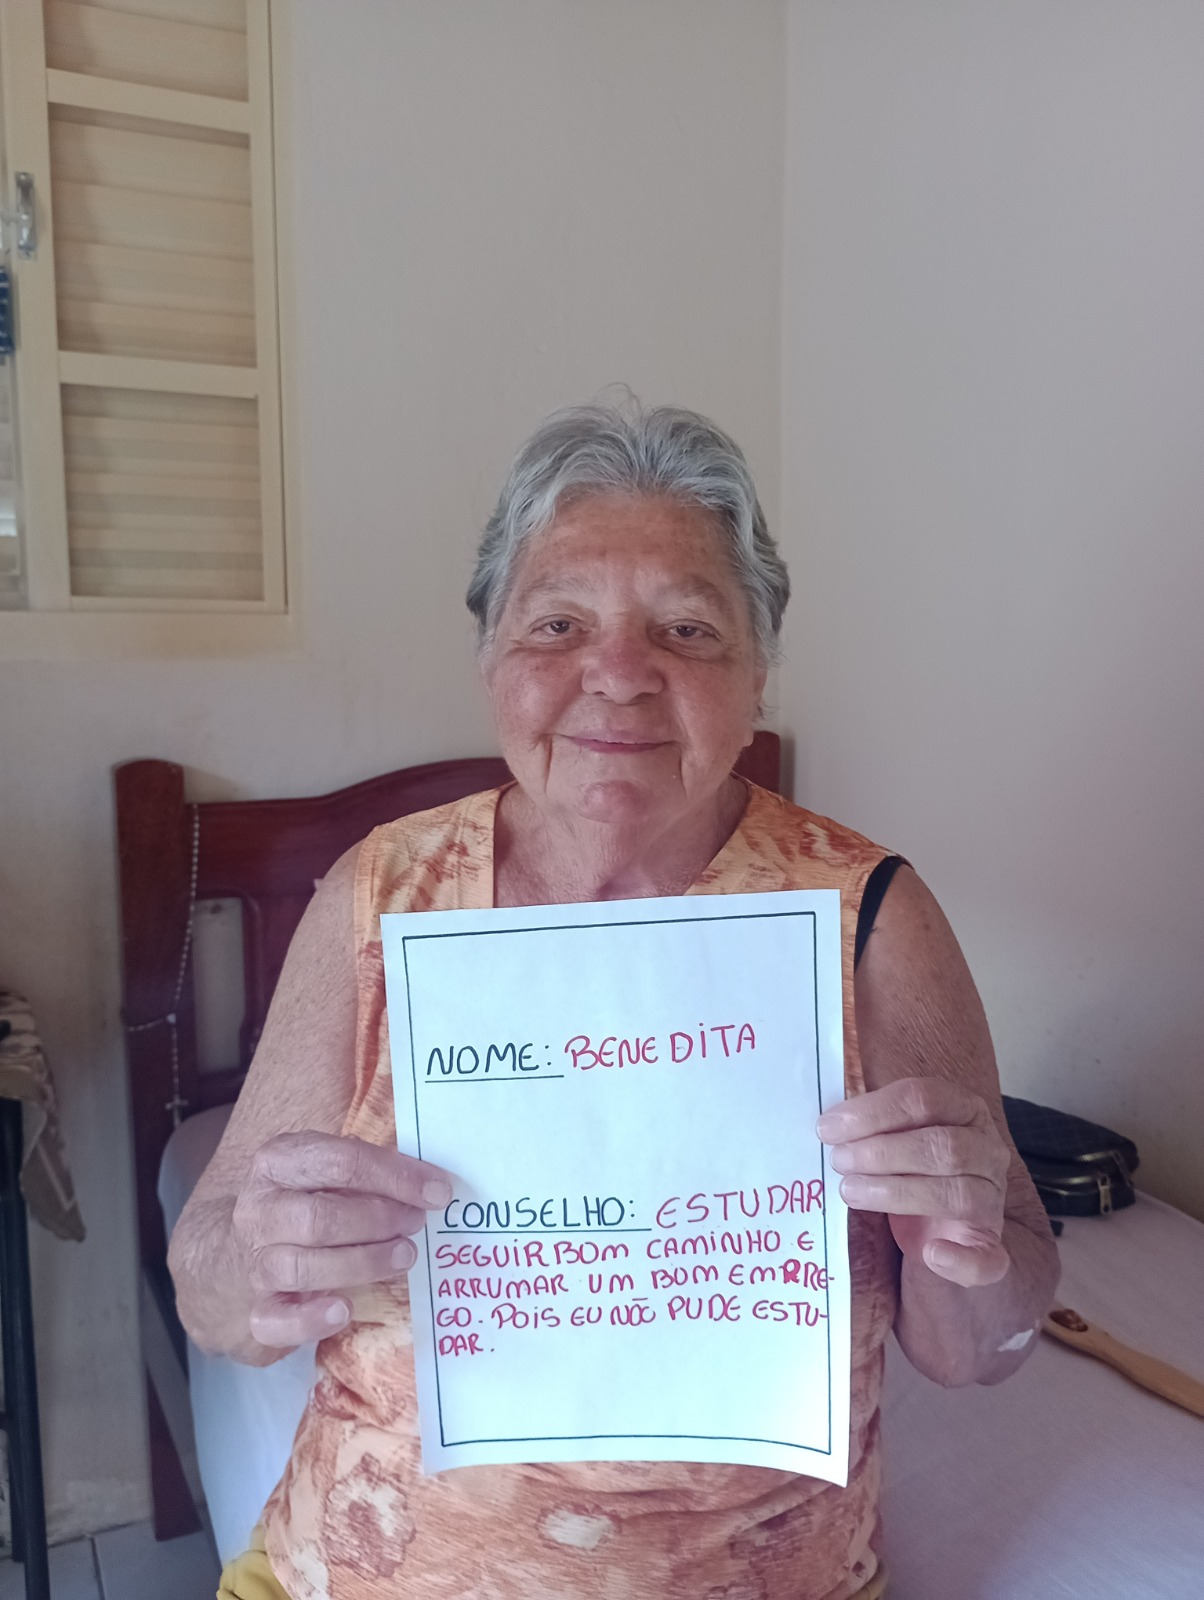 NOME: BENEDITA
CONSELHO: ESTUDAR
SEGUIR BOM CAMINHO E
ARRUMAR UM BOM EMPRE-
GO. POIS EU NÃO PUDE ESTU-
DAR.